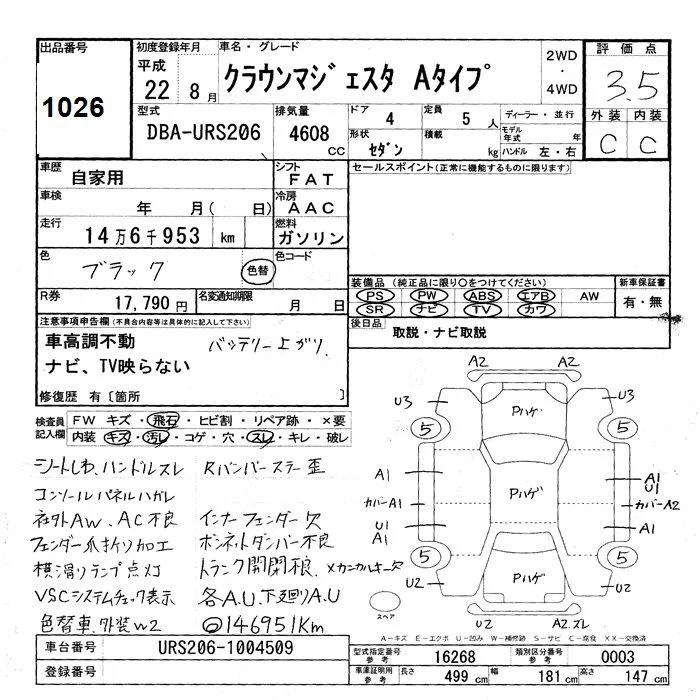 出品番号 1026
初度登録年月 平成 22 8月
車名・グレード クラウンマジェスタ Aタイプ
2WD・4WD
評価点 3.5
外装 C 内装 C
型式 DBA-URS206
排気量 4608 CC
ドア 4 定員 5 人
形状 セダン 積載 kg
ディーラー・並行
モデル年式 年
ハンドル 左・右
車歴 自家用
シフト FAT
セールスポイント(正常に機能するものに限ります)
車検 年 月( 日)
冷房 AAC
走行 14万6千953 km
燃料 ガソリン
色 ブラック 色替 色コード
R券 17,790円 名変通知期限 月 日
装備品(純正品に限り○をつけてください) 新車保証書
PS PW ABS エアB AW 有・無
SR ナビ TV カワ
後日品 取説・ナビ取説
注意事項申告欄(不具合内容等は具体的に記入して下さい)
車高調不動 バッテリー上がり
ナビ、TV映らない
修復歴 有〔箇所 〕
検査員記入欄 FW キズ・飛石・ヒビ割・リペア跡・×要
内装 キズ・汚レ・コゲ・穴・スレ・キレ・破レ
シートしわ、ハンドルスレ Rバンパーステー歪
コンソールパネルハガレ
社外AW、AC不良 インナーフェンダー欠
フェンダー爪折り加工 ボンネットダンパー不良
横滑りランプ点灯 トランク開閉不良、メカニカルキー欠
VSCシステムチェック表示 各A.U、下廻りA.U
色替車、外装W2 ◎146951Km
A2 A2
U3 Pハゲ U3
5 5
A1 Pハゲ A1 U1
カバーA1 カバーA2
U1 A1 A1
5 5
U2 Pハゲ U2
スペア U2 A2.ズレ
A-キズ E-エクボ U-凹み W-補修跡 S-サビ C-腐食 XX-交換済
車台番号 URS206-1004509
登録番号
型式指定番号 参考 16268 類別区分番号 参考 0003
車庫証明用 参考 長さ 499 cm 幅 181 cm 高さ 147 cm